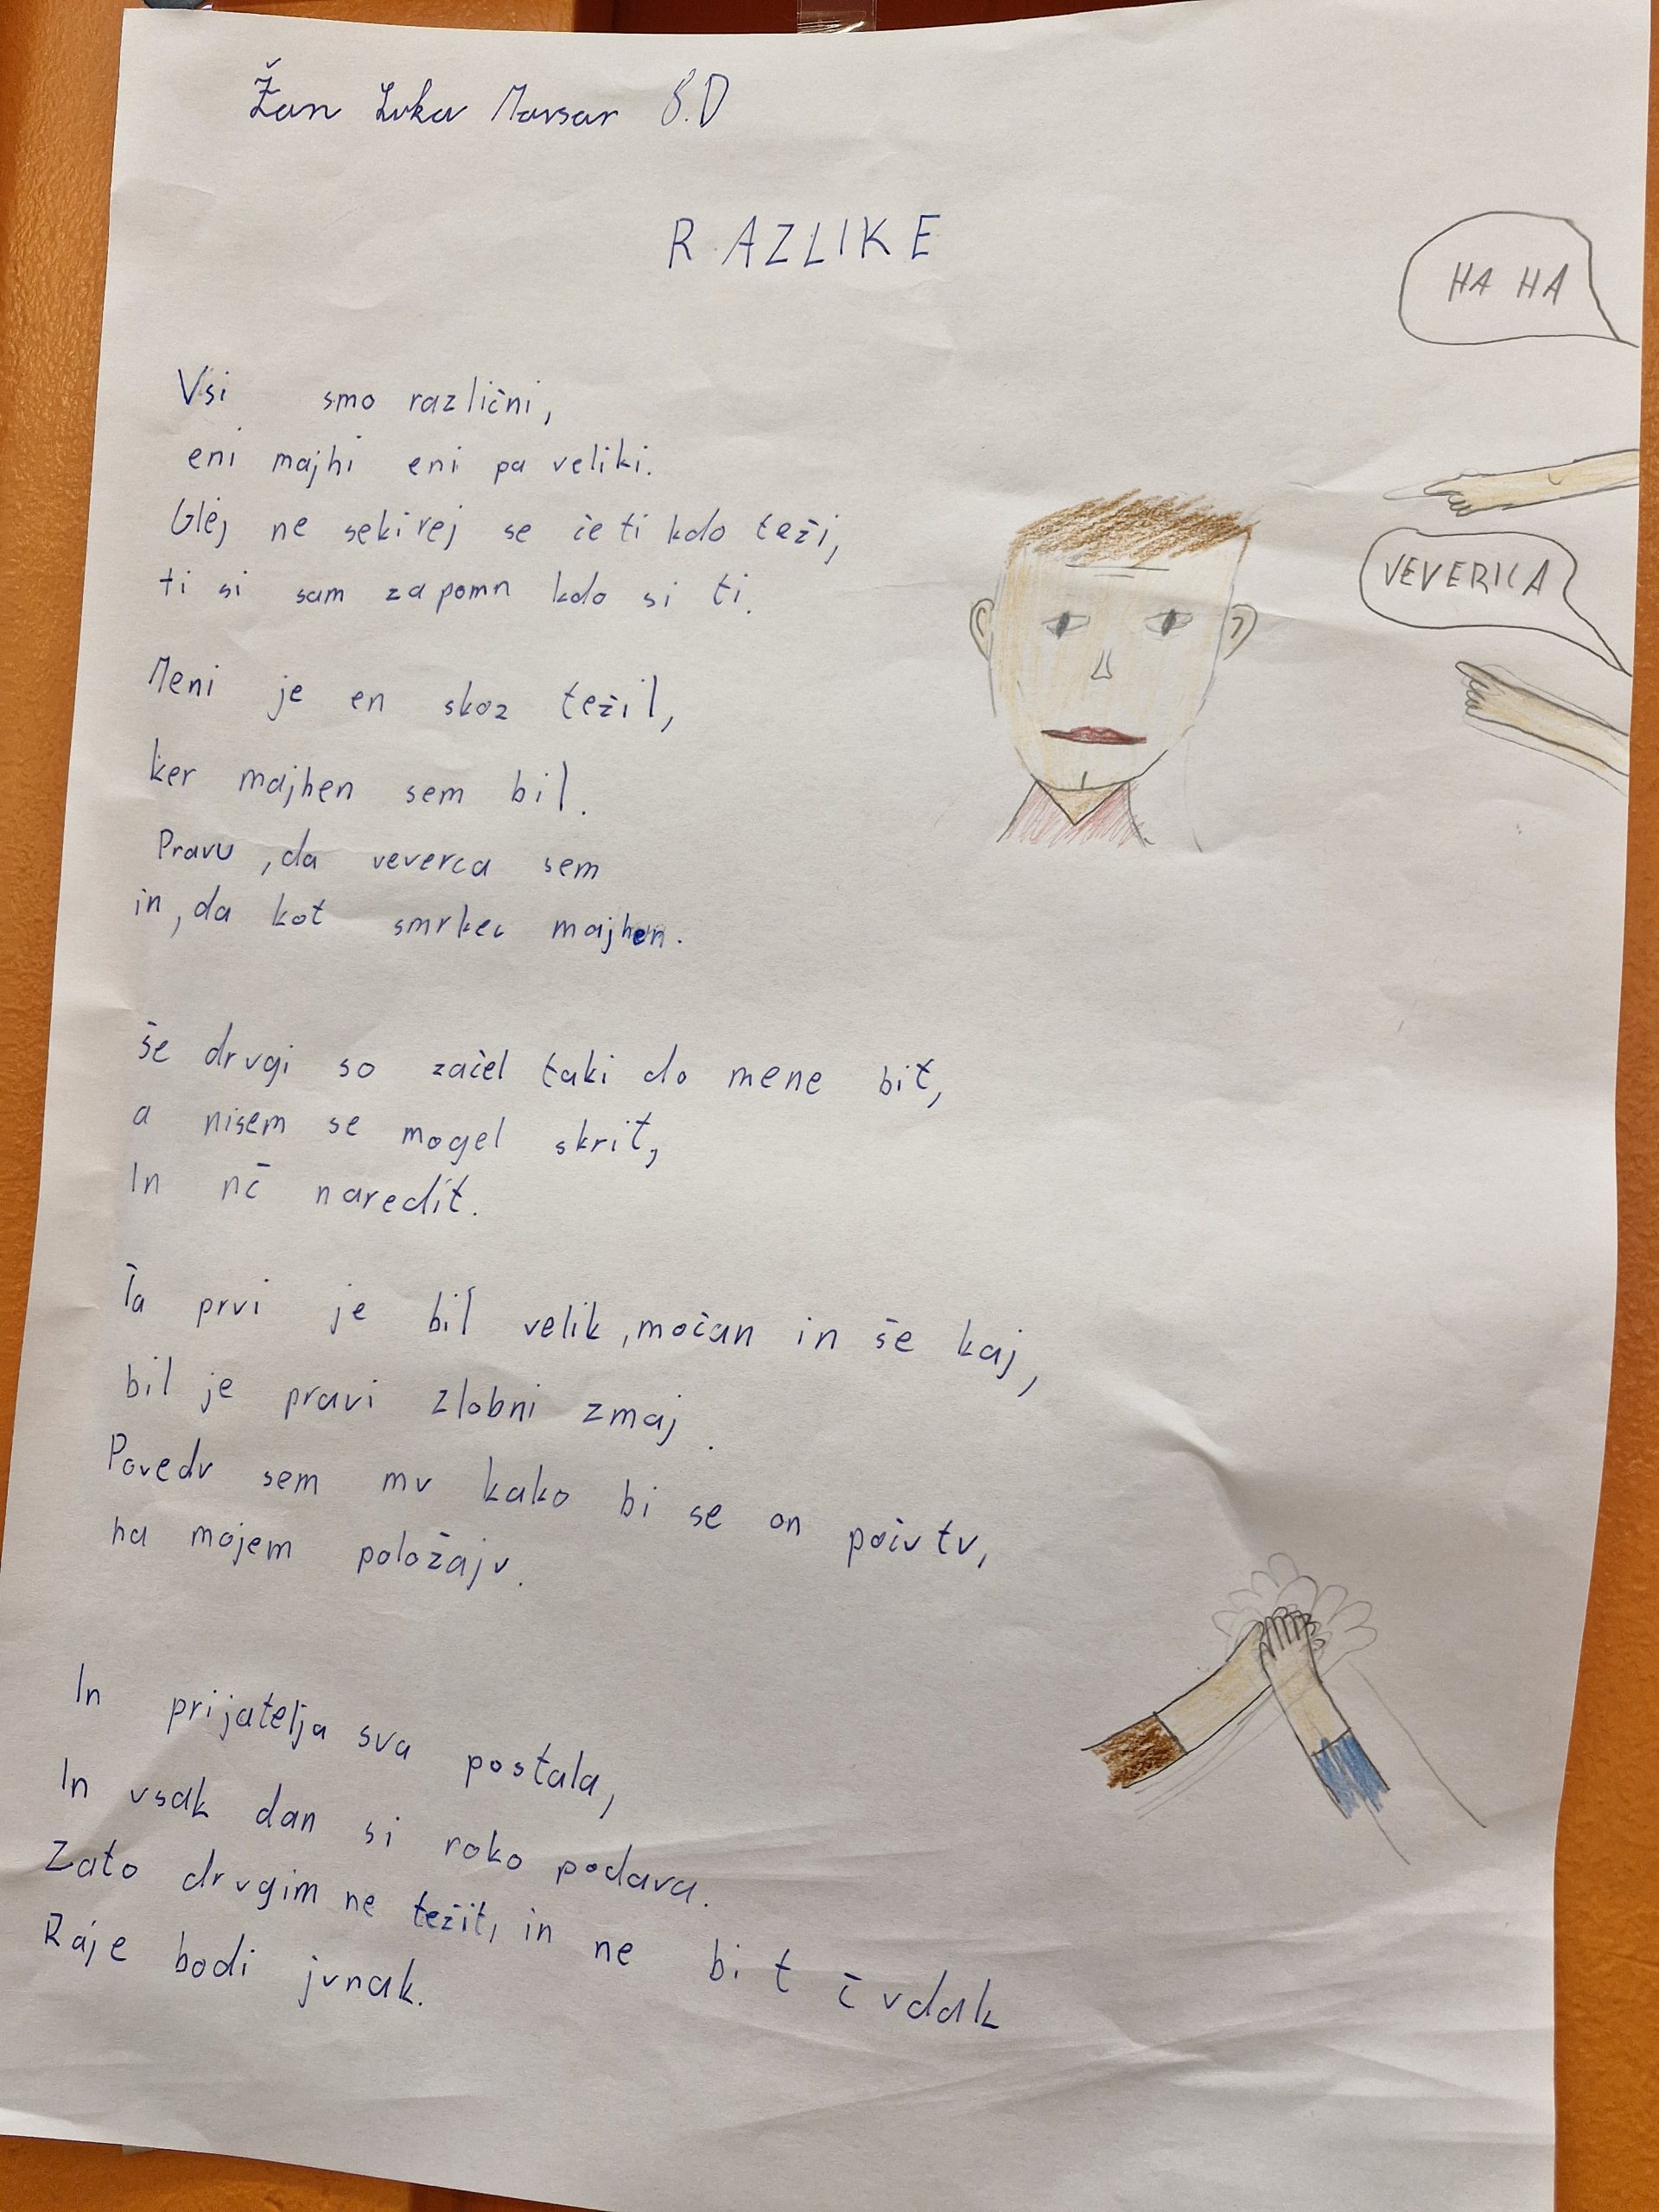 Žan Luka Mavsar 8.D
RAZLIKE
HA HA
VEVERICA
Vsi smo različni,
eni majhi eni pa veliki.
Glej ne sekirej se če ti kdo teži,
ti si sam zapomn kdo si ti.
Meni je en skoz težil,
ker majhen sem bil.
Pravu, da veverca sem
in, da kot smrkec majhen.
še drugi so začel taki do mene bit,
a nisem se mogel skrit,
In nč naredit.
Ta prvi je bil velik, močan in še kaj,
bil je pravi zlobni zmaj.
Povedu sem mu kako bi se on počutu,
na mojem položaju.
In prijatelja sva postala,
In vsak dan si roko podava.
Zato drugim ne težit, in ne bit čudak
Raje bodi junak.